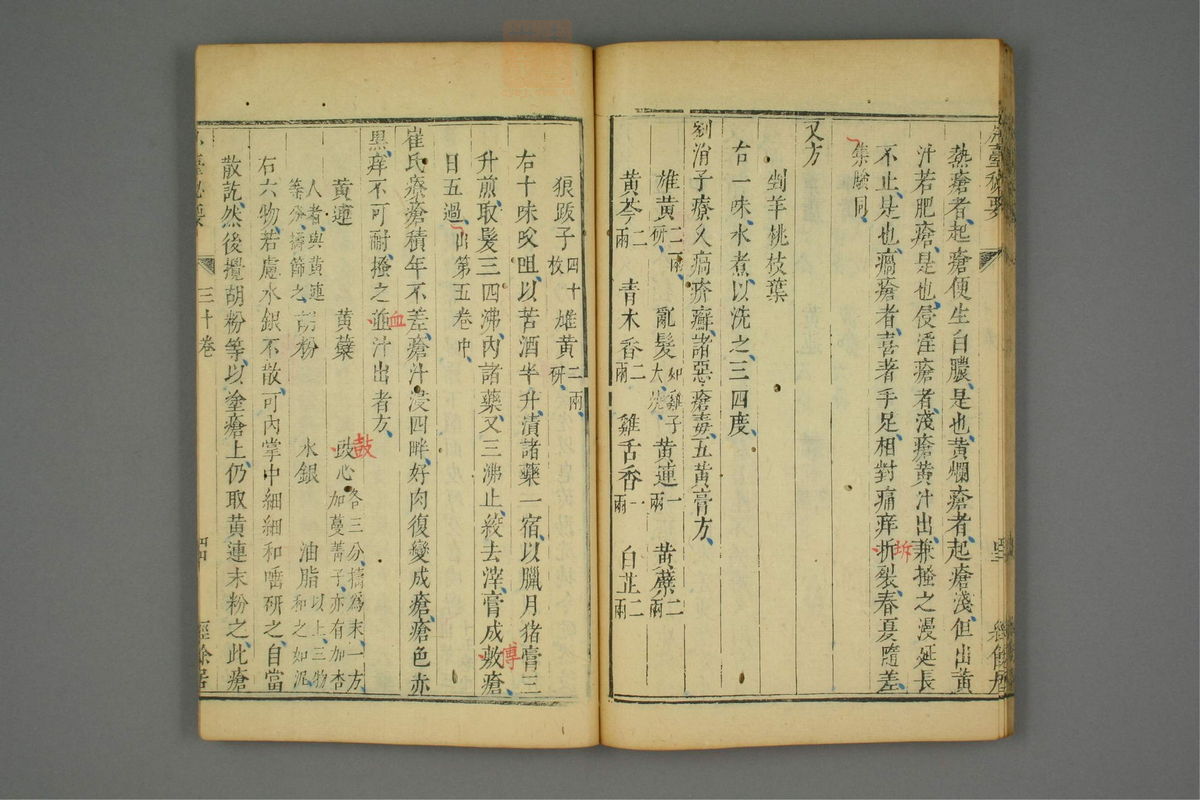 熱瘡者起瘡便生白膿是也黃爛瘡者起瘡淺但出黃
汁若肥瘡是也侵淫瘡者淺瘡黃汁出兼搔之漫延長
不止是也瘑瘡者喜著手足相對痛痒折裂春夏隨差
坼
集驗同
又方
剉羊桃枝葉
右一味水煮以洗之三四度
劉涓子療久瘑疥癬諸惡瘡毒五黃膏方
雄黃二兩研 亂髮如雞子大燒 黃連一兩 黃蘗二兩
黃芩二兩 青木香二兩 雞舌香一兩 白芷二兩
狼跋子四十枚 雄黃二兩研
右十味㕮咀以苦酒半升漬諸藥一宿以臘月猪膏三
升煎取髮三四沸內諸藥又三沸止絞去滓膏成敷瘡
傅
日五過出第五卷中
崔氏療瘡積年不差瘡汁浸四畔好肉復變成瘡瘡色赤
黑痒不可耐搔之並汁出者方
血
黃連 黃蘗 豉心各三分擣為末一方加蔓菁子亦有加杏
鼓
人者與黃連等分擣篩之 胡粉 水銀 油脂以上三物和之如泥
右六物若慮水銀不散可內掌中細細和唾研之自當
散訖然後攪胡粉等以塗瘡上仍取黃連末粉之此瘡
三十卷